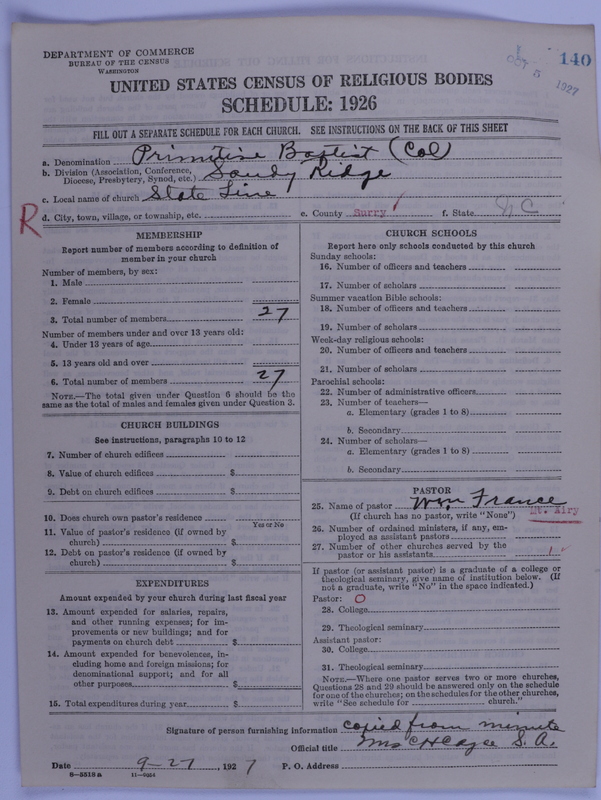 DEPARTMENT OF COMMERCE
BUREAU OF THE CENSUS
WASHINGTON
OCT 5 1927
140
UNITED STATES CENSUS OF RELIGIOUS BODIES
SCHEDULE: 1926
FILL OUT A SEPARATE SCHEDULE FOR EACH CHURCH. SEE INSTRUCTIONS ON THE BACK OF THIS SHEET
a. Denomination Primitive Baptist (Col)
b. Division (Association, Conference, Diocese, Presbytery, Synod, etc.) Sandy Ridge
c. Local name of church State Line
R
d. City, town, village, or township, etc. e. County Surry f. State N C
MEMBERSHIP
Report number of members according to definition of
member in your church
Number of members, by sex:
1. Male
2. Female
3. Total number of members 27
Number of members under and over 13 years old:
4. Under 13 years of age
5. 13 years old and over
6. Total number of members 27
NOTE.—The total given under Question 6 should be the
same as the total of males and females given under Question 3.
CHURCH BUILDINGS
See instructions, paragraphs 10 to 12
7. Number of church edifices
8. Value of church edifices $
9. Debt on church edifices $
10. Does church own pastor's residence
Yes or No
11. Value of pastor's residence (if owned by
church) $
12. Debt on pastor's residence (if owned by
church) $
EXPENDITURES
Amount expended by your church during last fiscal year
13. Amount expended for salaries, repairs,
and other running expenses; for im-
provements or new buildings; and for
payments on church debt $
14. Amount expended for benevolences, in-
cluding home and foreign missions; for
denominational support; and for all
other purposes $
15. Total expenditures during year $
CHURCH SCHOOLS
Report here only schools conducted by this church
Sunday schools:
16. Number of officers and teachers
17. Number of scholars
Summer vacation Bible schools:
18. Number of officers and teachers
19. Number of scholars
Week-day religious schools:
20. Number of officers and teachers
21. Number of scholars
Parochial schools:
22. Number of administrative officers
23. Number of teachers—
a. Elementary (grades 1 to 8)
b. Secondary
24. Number of scholars—
a. Elementary (grades 1 to 8)
b. Secondary
PASTOR
25. Name of pastor Wm France
(If church has no pastor, write "None") Mt. Airy
26. Number of ordained ministers, if any, em-
ployed as assistant pastors
27. Number of other churches served by the
pastor or his assistants 1
If pastor (or assistant pastor) is a graduate of a college or
theological seminary, give name of institution below. (If
not a graduate, write "No" in the space indicated.)
Pastor: O
28. College
29. Theological seminary
Assistant pastor:
30. College
31. Theological seminary
NOTE.—Where one pastor serves two or more churches,
Questions 28 and 29 should be answered only on the schedule
for one of the churches; on the schedules for the other churches,
write "See schedule for church."
Signature of person furnishing information copied from minute
Official title Mrs C H Cayce S. A.
Date 9-27, 1927 P. O. Address
8—5518 a 11—9054